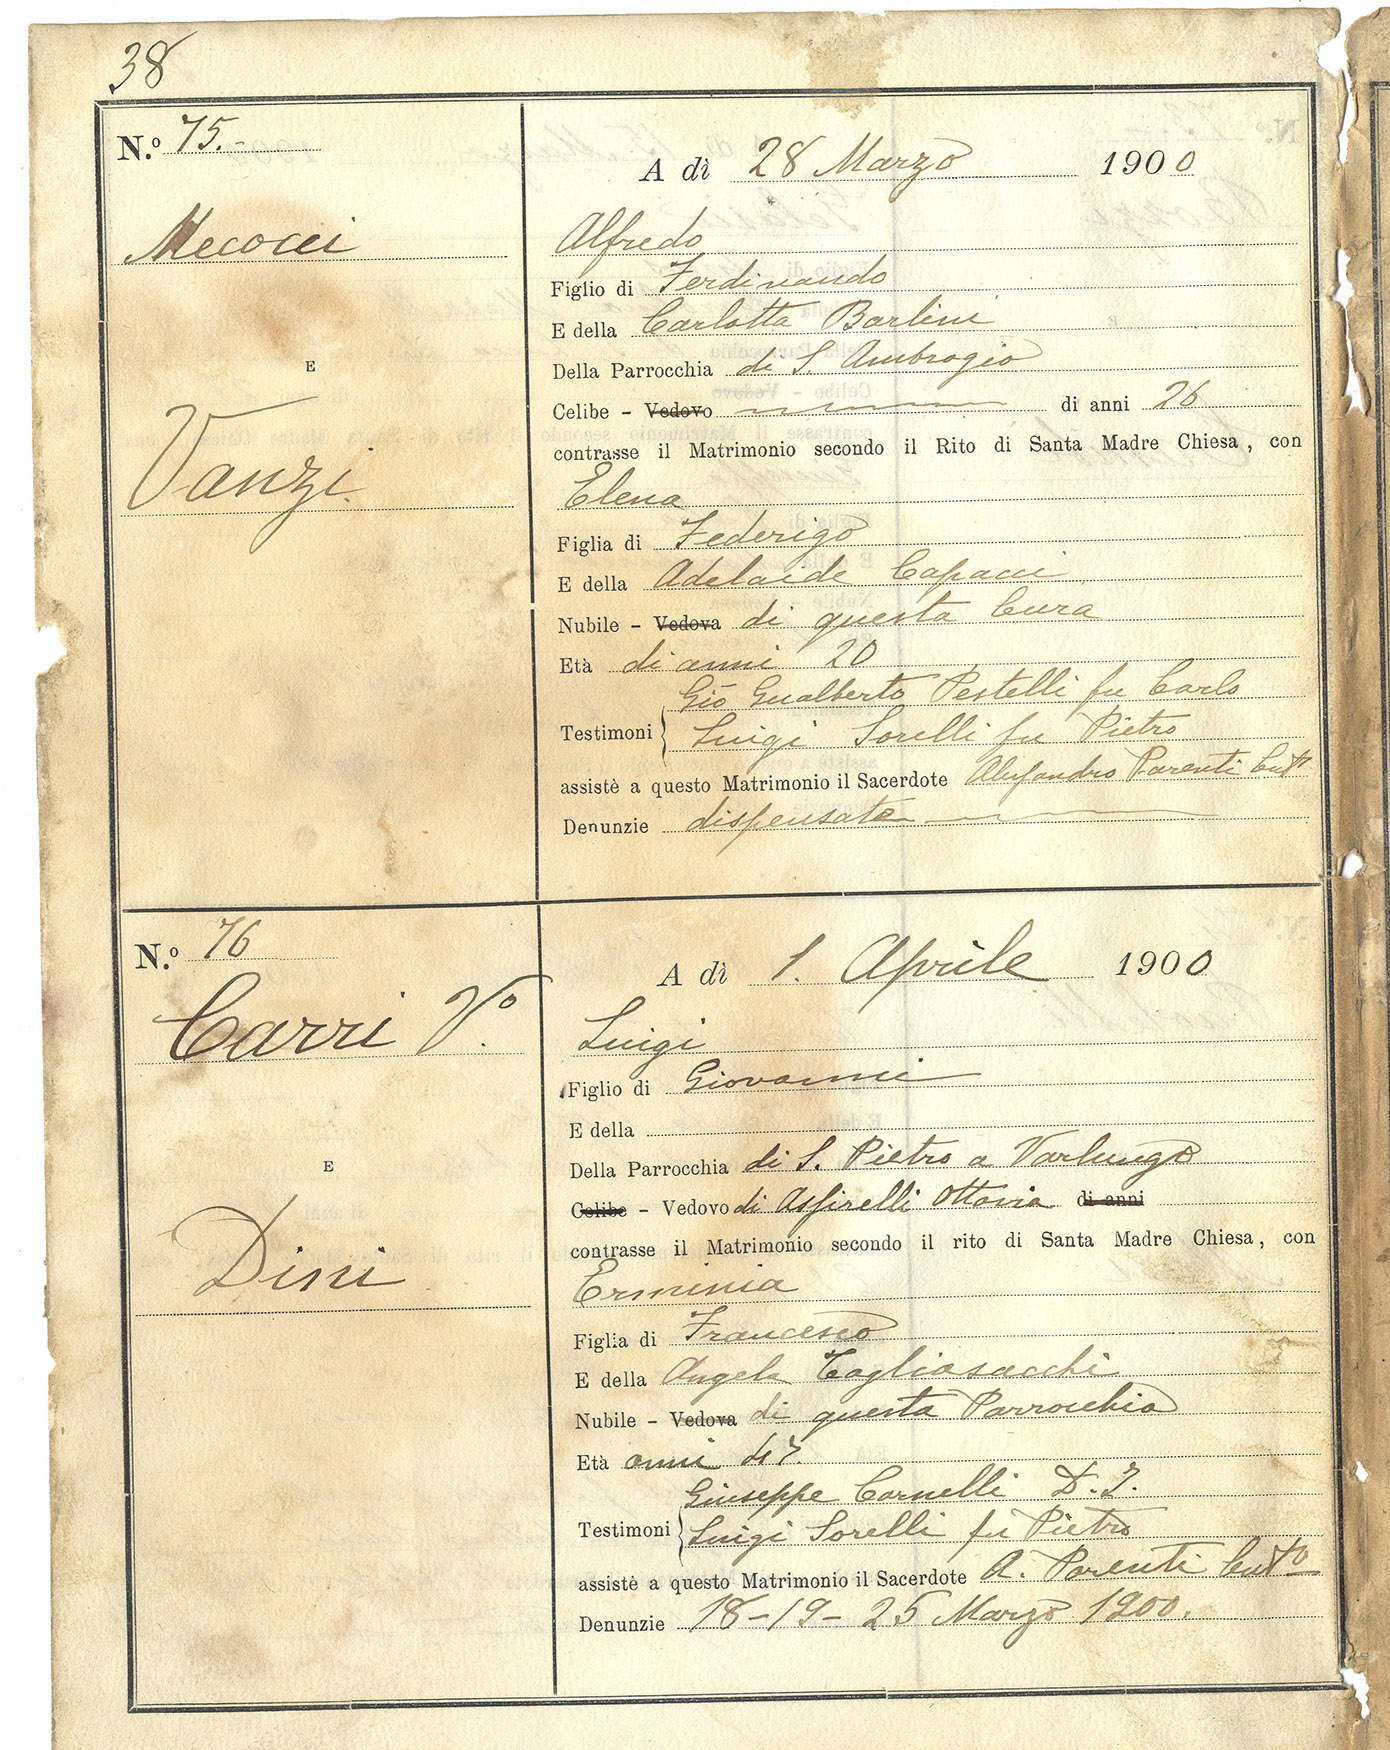 38
N.º 75.-
A dì 28 Marzo 1900
Mecocci
Alfredo
Figlio di Ferdinando
E della Carlotta Barlini
Della Parrocchia di S. Ambrogio
E
Celibe - Vedovo di anni 26
contrasse il Matrimonio secondo il Rito di Santa Madre Chiesa, con
Vanzi
Elena
Figlia di Federigo
E della Adelaide Capacci
Nubile - Vedova di questa Cura
Età di anni 20
Gio Gualberto Pestelli fu Carlo
Testimoni
Luigi Sorelli fu Pietro
assistè a questo Matrimonio il Sacerdote Alessandro Parenti Cur.to
Denunzie dispensate
N.º 76
A dì 1. Aprile 1900
Carri V.º
Luigi
Figlio di Giovanni
E della
E
Della Parrocchia di S. Pietro a Varlungo
Celibe - Vedovo di Ottavia di anni
contrasse il Matrimonio secondo il rito di Santa Madre Chiesa, con
Dini
Erminia
Figlia di Francesco
E della Angela Tagliasacchi
Nubile - Vedova di questa Parrocchia
Età anni
Giuseppe Cornelli
Testimoni
Luigi Sorelli fu Pietro
assistè a questo Matrimonio il Sacerdote A. Parenti Cur.to
Denunzie 18-19-25 Marzo 1900.